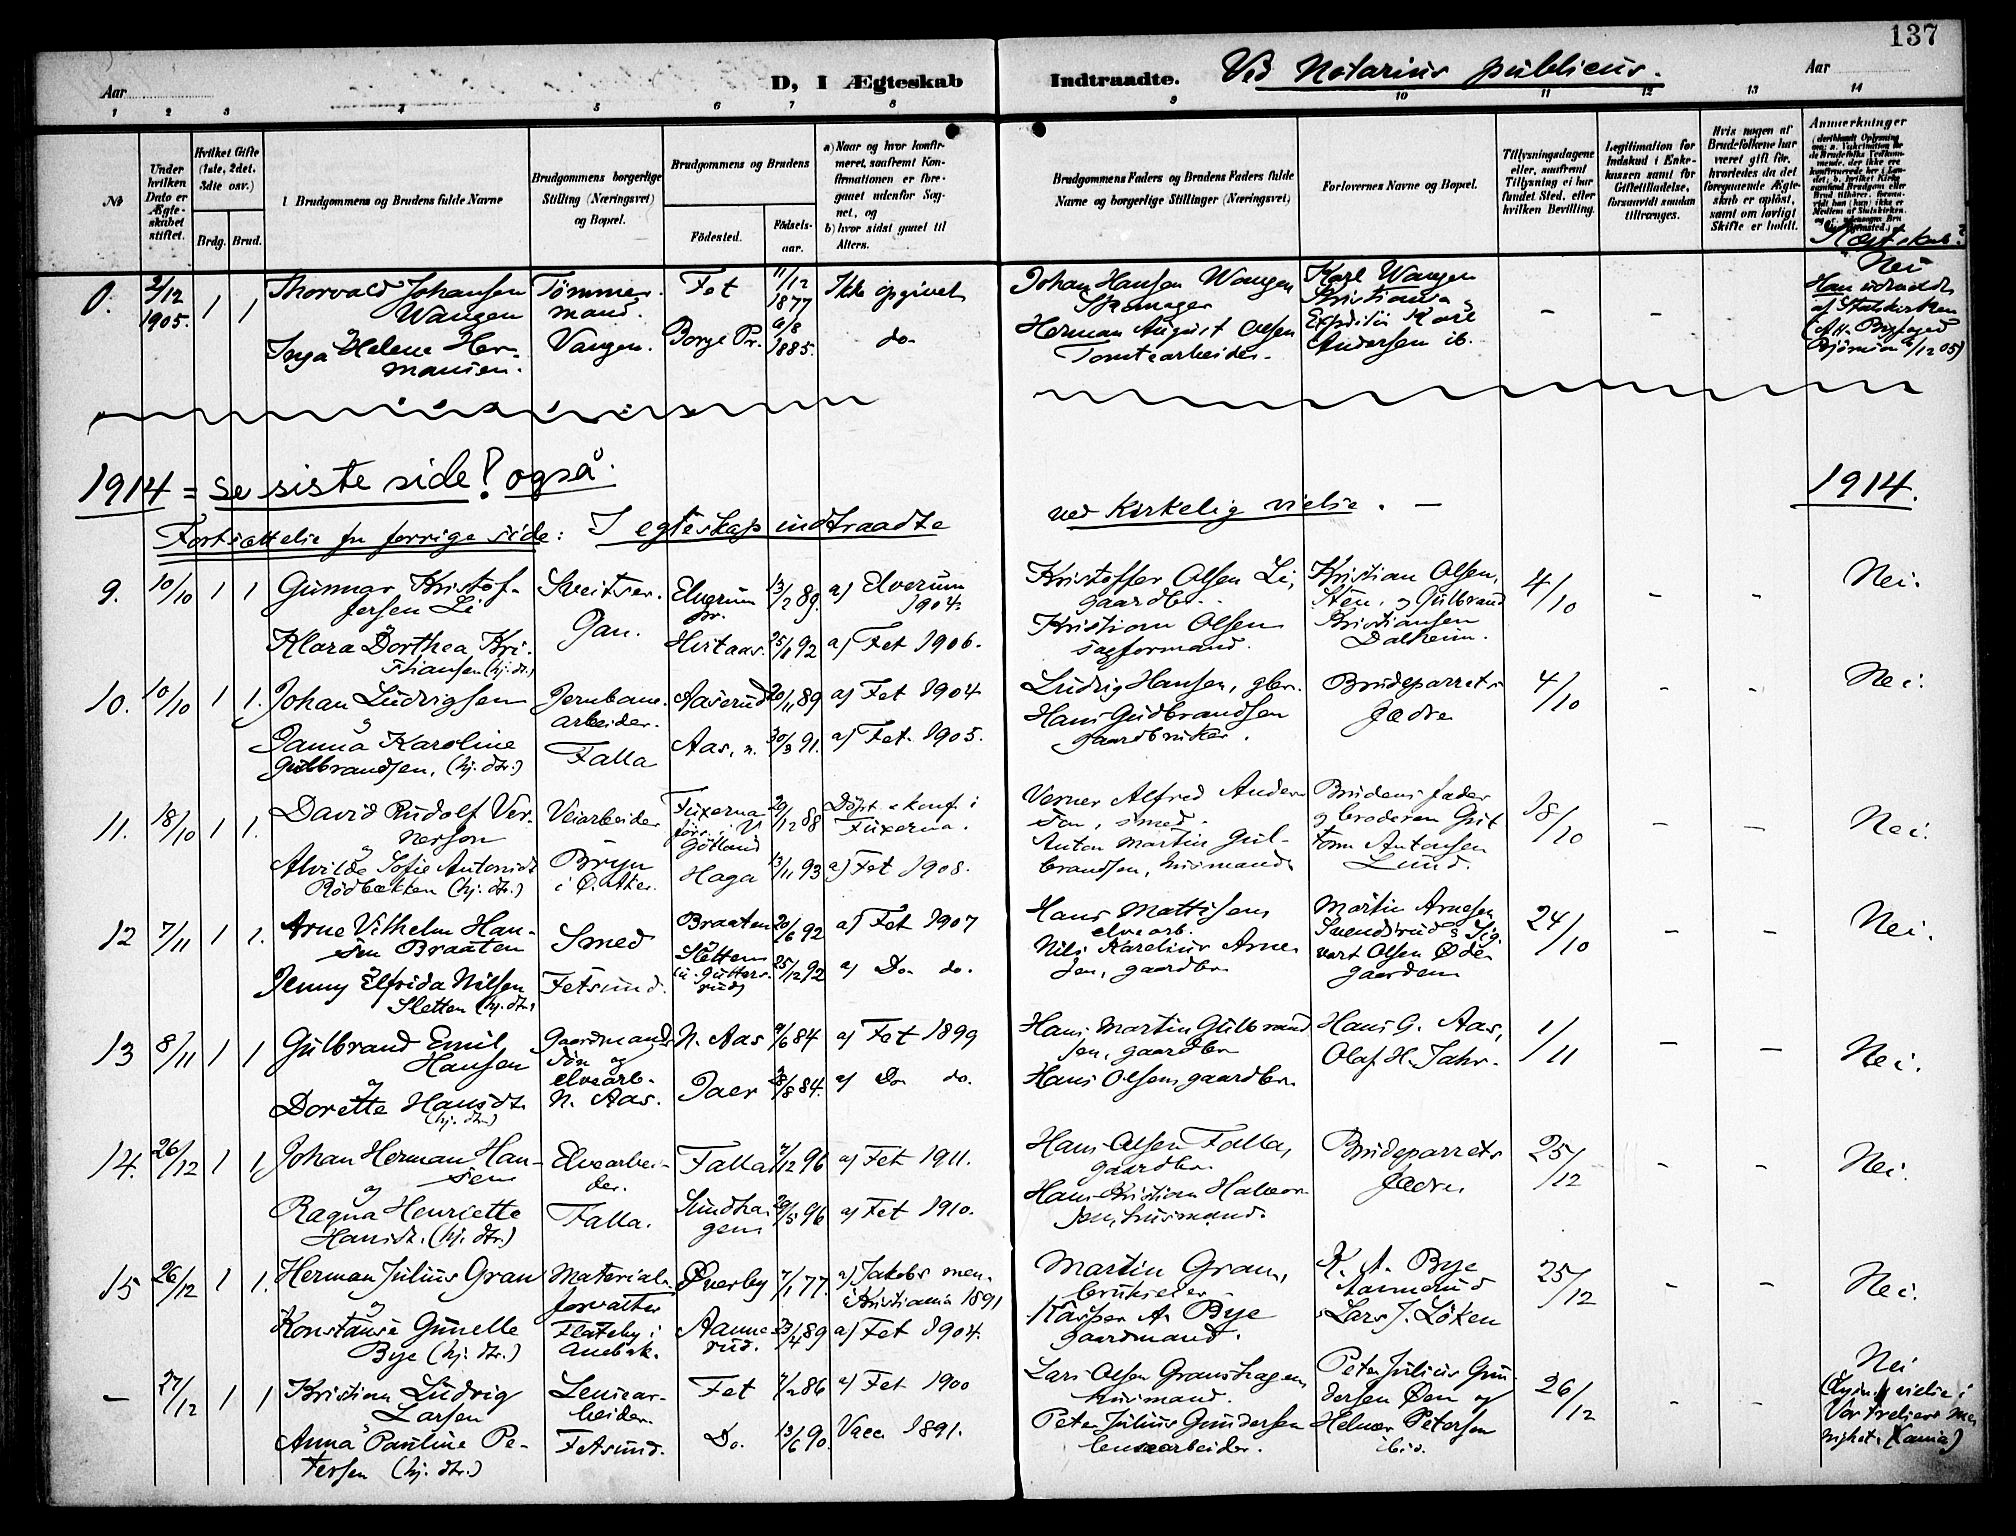 137
Aar
D, I Ægteskab
Indtraadte.
Ved Notarius publicus.
Aar
1 2 3 4 5 6 7 8 9 10 11 12 13 14
No
Under hvilken Dato er Ægteskabet stiftet.
Hvilket Gifte (1ste, 2det, 3die osv.)
Brdg. Brud.
Brudgommens og Brudens fulde Navne
Brudgommens borgerlige Stilling (Næringsvei) og Bopæl.
Brudgommens og Brudens
Fødested.
Fødselsaar.
a) Naar og hvor konfirmeret, saafremt Konfirmationen er foregaaet udenfor Sognet, og
b) hvor sidst gaaet til Alters.
Brudgommens Faders og Brudens Faders fulde Navne og borgerlige Stillinger (Næringsvei)
Forlovernes Navne og Bopæl.
Tillysningsdagene eller, saafremt Tillysning ei har fundet Sted, efter hvilken Bevilling.
Legitimation for Indskud i Enkekassen samt for Giftetilladelse, forsaavidt saadan tiltrænges.
Hvis nogen af Brudefolkene har været gift før, hvorledes da det foregaaende Ægteskab er opløst, samt om lovligt Skifte er holdt.
Anmerkninger
0. 2/12 1905. 1 1
Thorvald Johansen Wangen
Inga Helene Hermansen.
Tømmermand.
Vangen.
Fet 11/12 1877
Borge Pr. 9/8 1885.
Ikke opgivet
do
Johan Hansen Wangen
Herman August Olsen
Tomtearbeider.
Karl Wangen Kristiania
Karl Andersen ib.
- -
Nei
Han udtraadt af Statskirken
1914 = se siste side! også.
1914.
Fortsættelse fra forrige side: I egteskap indtraadte
ved kirkelig vielse. -
9. 10/10 1 1
Gunnar Kristoffersen Li
Klara Dorthea Kristiansen (hj. dtr.)
Sveitser.
Gan.
Elverum pr. 13/2 89
a) Elverum 1904.
a) Fet 1906.
Kristoffer Olsen Li, gaardbr.
Kristian Olsen sagformand.
Kristian Olsen, Sten, og Gulbrand Kristiansen Dalheim.
4/10
- -
Nei.
10. 10/10 1 1.
Johan Ludvigsen
Karoline Gulbrandsen, (hj. dtr.)
Jernbanearbeider.
Falla
Aaserud 20/11 89
Aas, n. 30/3 91.
a) Fet 1904
a) Fet. 1905.
Ludvig Hansen, gbr.
Hans Gudbrandsen gaardbruker.
Brudeparrets fædre
4/10
- -
Nei.
11. 18/10 1 1.
David Rudolf Vernerson
Alvilde Sofie Antonsdt. Rødbækken (hj. dtr.)
Veiarbeider
Bryn i Ø. Aker.
Fuxerna
Haga 13/11 93
Døpt & konf. i Fuxerna.
a) Fet 1908.
Verner Alfred Anderson, smed.
Anton Martin Gulbrandsen, husmand.
Brudens fader og broderen
Antonsen Lund.
18/10
- -
Nei.
12 7/11 1 1.
Arne Vilhelm Hansen Braaten
Jenny Elfrida Nilsen Sletten (hj. dtr.)
Smed
Fetsund.
Braaten 20/6 92
Sletten 25/12 92
a) Fet 1907
a) Do do.
Hans Mattisen elvearb.
Nils Karelius Arnesen, gaardbr.
Martin Arnesen
Olsen Ødegaarden
24/10
- -
Nei.
13 8/11 1 1
Gulbrand Emil Hansen
Dorette Hansdt. (hj. dtr.)
Gaardmandssøn og elvearb. N. Aas.
N. Aas 9/6 84
Jaer
a) Fet 1899
a) Do do.
Hans Martin Gulbrandsen, gaardbr
Hans Olsen, gaardbr.
Hans G. Aas,
Olaf H. Jahr.
1/11
- -
Nei.
14. 26/12 1 1
Johan Herman Hansen
og
Ragna Henriette Hansdt. (hj. dtr.)
Elvearbeider.
Falla.
Falla
Sundhagen 29/5 96
a) Fet 1911.
a) Fet 1910.
Hans Olsen Falla, gaardbr.
Hans Kristian Halvorsen, husmand.
Brudeparrets fædre.
25/12
- -
Nei.
15 26/12 1 1.
Herman Julius Gran
og
Konstanse Gunelle Bye (hj. dtr.)
Materialforvalter
Flateby i Enebak.
Øverby 7/1 77.
Aannerud. 23/4 89
a) Jakobs men. i Kristiania 1891
a) Fet 1904.
Martin Gran, brukseier
Kasper A. Bye gaardmand.
K. A. Bye Aannerud
Lars J. Løken
25/12
- -
Nei.
- 27/12 1 1
Kristian Ludvig Larsen
Anna Pauline Petersen (hj. dtr.)
Lensearbeider.
Fetsund.
Fet 7/2 86
Do. 13/6 90.
a) Fet 1900
Vacc. 1891.
Lars Olsen Granshagen, husmand.
Peter Julius Gundersen lensearbeider.
Peter Julius Gundersen Øen og Helmer Petersen ibid.
26/12
- -
Nei
(Lysn. vielse i Vor frelsers menighet, Kania)